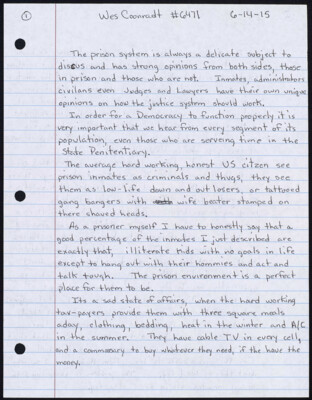 1
Wes Coonradt #6471 6-14-15
The prison system is always a delicate subject to
discus and has strong opinions from both sides, those
in prison and those who are not. Inmates, administrators
civilans even Judges and Lawyers have their own unique
opinions on how the justice system should work.
In order for a Democracy to function properly it's
very important that we hear from every segment of its
population, even those who are serving time in the
State Penitentiary.
The average hard working, honest US citzen see
prison inmates as criminals and thugs, they see
them as low-life down and out losers, or tattooed
gang bangers with wife beater stamped on
there shaved heads.
As a prisoner myself I have to honestly say that a
good percentage of the inmates I just described are
exactly that, illiterate kids with no goals in life
except to hang out with their hommies and act and
talk tough. The prison environment is a perfect
place for them to be.
Its a sad state of affairs, when the hard working
tax-payers provide them with three square meals
aday, clothing, bedding, heat in the winter and A/C
in the summer. They have cable TV in every cell,
and a commissary to buy whatever they need, if the have the
money.